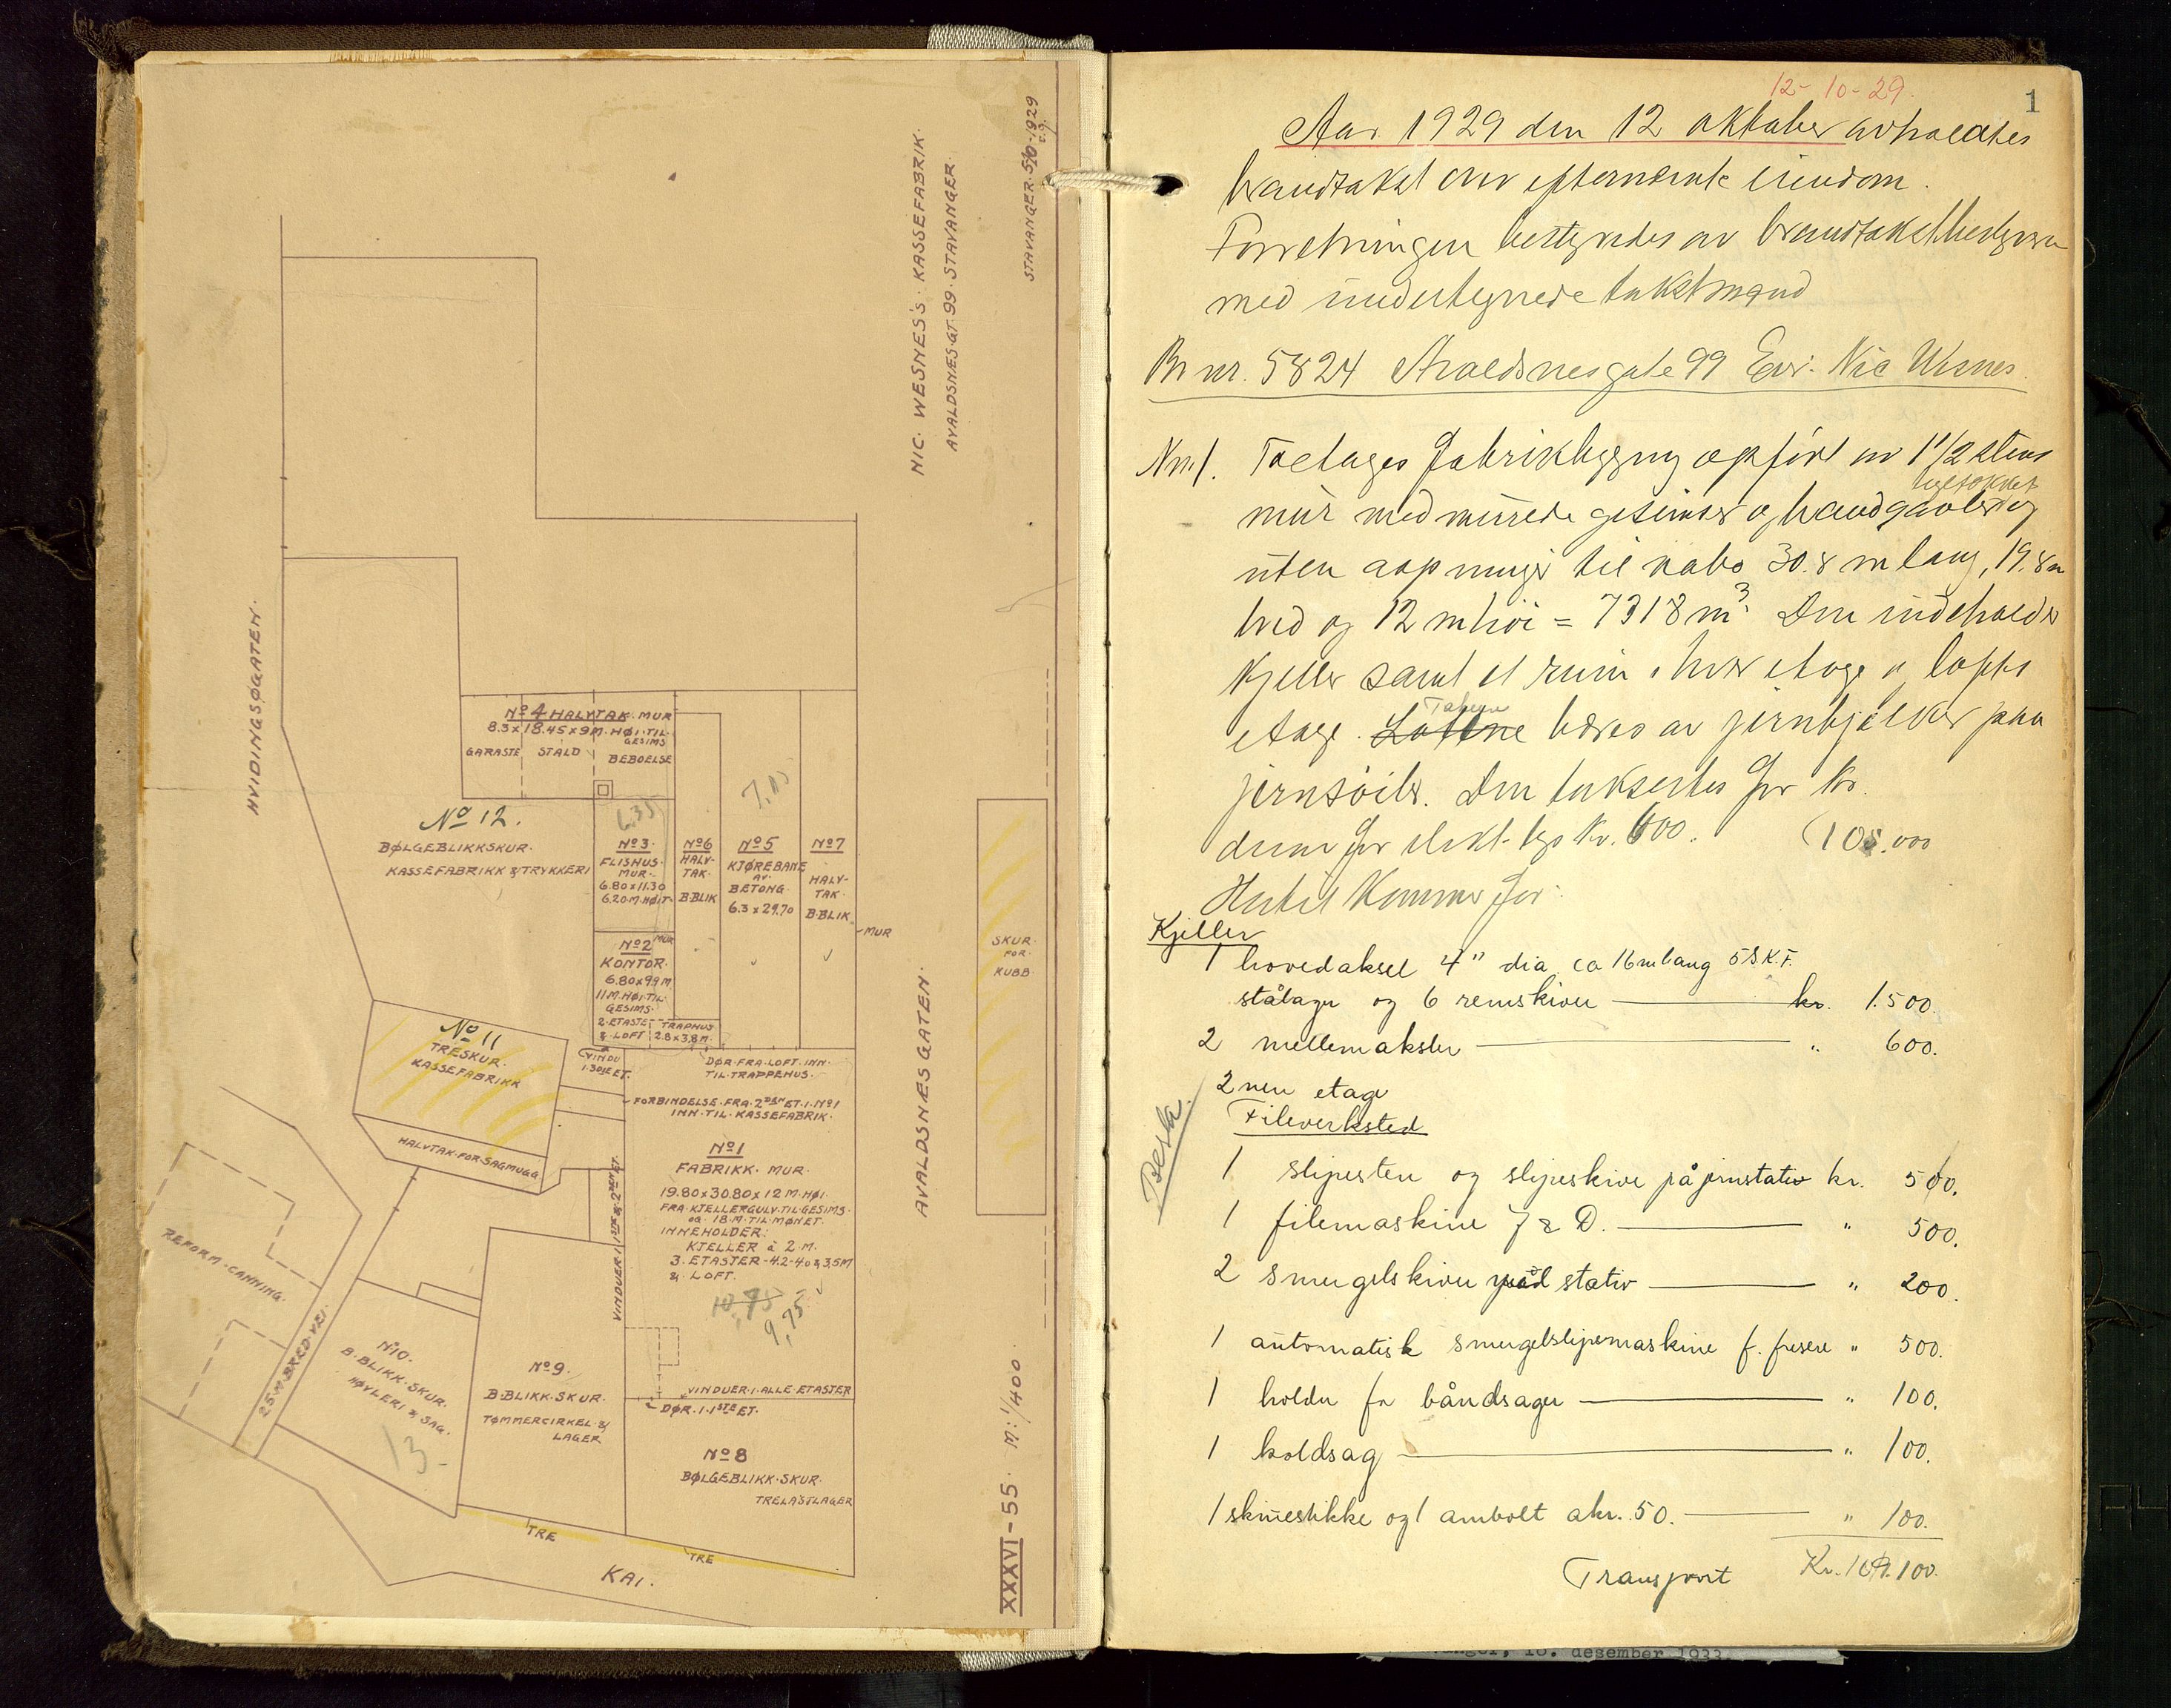 NIC. WESNES'S. KASSEFABRIK.
AVALDSNES.GT. 99. STAVANGER.
STAVANGER. 5/10-1929
HVIDINGSØGATEN.
AVALDSNESGATEN.
Nº 4 HALVTAK. MUR
8.3 x 18.45 x 9M. HØI. TIL.
GESIMS
GARASJE STALD BEBOELSE
Nº 12.
BØLGEBLIKKSKUR.
KASSEFABRIKK & TRYKKERI
6,35
Nº 3.
FLISHUS.
MUR.
6.80 x 11.30
6.20.M.HØIT.
Nº 6
HALV-
TAK.
B.BLIK
7,05
Nº 5
KJØREBANE
AV.
BETONG.
6.3 x 29.70
Nº 7
HALV-
TAK.
B.BLIK.
MUR
Nº 2 MUR
KONTOR.
6.80 x 9.9 M
11 M. HØI. TIL.
GESIMS.
2. ETASJE
& LOFT
TRAPHUS
2.8 x 3.8 M.
SKUR.
FOR.
KUBB.
VINDU
1.3DJE ET.
DØR. FRA. LOFT. INN.
TIL. TRAPPEHUS.
FORBINDELSE. FRA. 2DEN ET. I. Nº 1
INN. TIL. KASSEFABRIK.
Nº 11
TRESKUR.
KASSEFABRIKK
HALVTAK. FOR. SAGMUGG
Nº 1
FABRIKK. MUR.
19.80 x 30.80 x 12 M. HØI.
FRA. KJELLERGULV. TIL. GESIMS.
OG. 18. M. TIL. MØNET.
INNEHOLDER:
KJELLER à 2. M.
3. ETASJER - 4.2 - 4.0 & 3.5 M
& LOFT.
10,75
9,75
VINDUER. I. 1STE & 2DEN ET.
REFORM. CANNING.
2.5 M. BRED. VEI.
Nº 10.
B. BLIKK. SKUR.
HØVLERI & SAG.
13-
Nº 9.
B. BLIKK. SKUR.
TØMMERCIRKEL &
LAGER
VINDUER. I. ALLE. ETASJER
DØR. I. 1STE ET.
Nº 8
BØLGEBLIKK. SKUR.
TRELASTLAGER
TRE
TRE
KAI.
XXXVI-55. M: 1/400.
12-10-29.
1
Aar 1929 den 12 oktober avholdtes
brandtakst over efternævnte eiendom.
Forretningen bestyredes av brandtakstbestyreren
med undertegnede takstmænd
Br nr. 5824 Avaldsnesgate 99 Eier: Nic Wesnes.
Nr. 1. Toetages fabrikbygning opført av 1 1/2 stens
teltækket
mur med murede gesimser og brandgavler og
uten aapninger til nabo 30.8 m lang, 19.8 m
bred og 12 m høi = 7318 m³. Den indeholder
kjeller samt et rum i hver etage og lofts
etage. Loftene bæres av jernbjelker paa
jernsøiler. Den taksertes for kr.
derav for elekt. lys kr. 600. 105.000
Hertil kommer for:
Kjeller
1 hovedaksel 4" dia. ca 16 m lang 5 S.K.F.
stålager og 6 remskiver kr. 1.500.
2 mellemaksler " 600.
2nen etage
Fileverksted
Besla.
1 slipesten og slipeskive på jernstativ kr. 500.
1 filemaskine J & D. " 500.
2 smergelskiver med stativ " 200.
1 automatisk smergelslipemaskine f. fresere " 500.
1 holder for båndsager " 100.
1 koldsag " 100.
1 skruestikke og 1 ambolt a kr. 50. " 100.
Transport Kr. 109.100.
desember 1933.